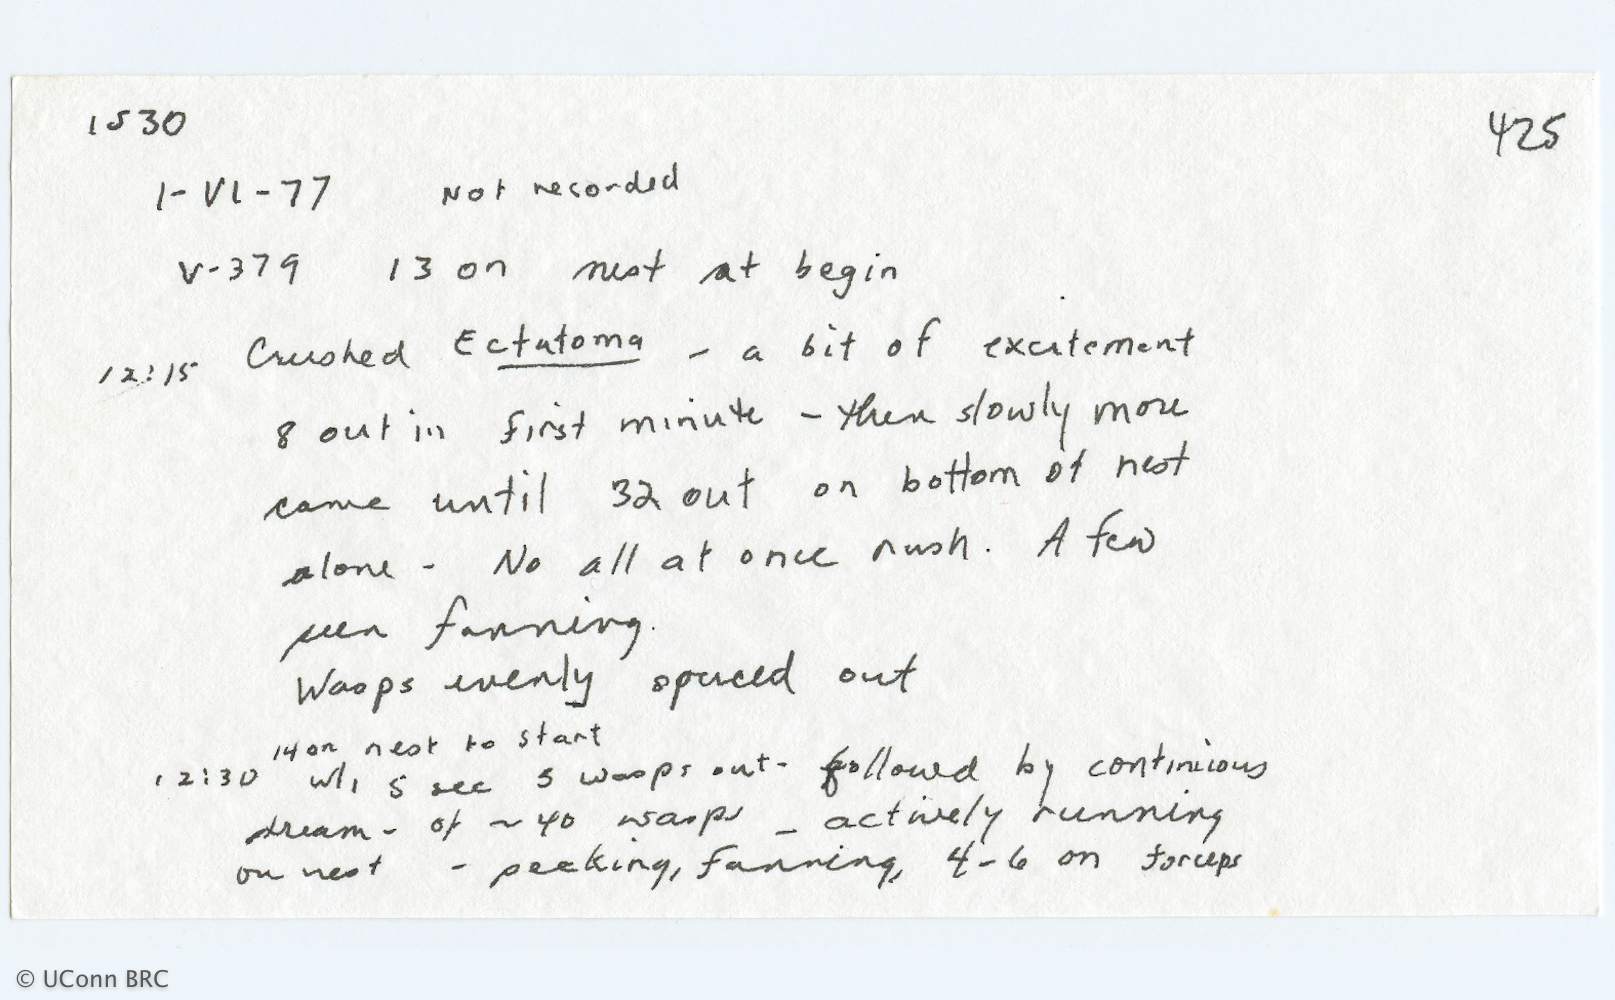 1530 425
1-VI-77 Not recorded
V-379 13 on nest at begin
12:15 Crushed Ectatoma - a bit of excitement
8 out in first minute - then slowly more
came until 32 out on bottom of nest
alone - No all at once rush. A few
seen fanning.
Wasps evenly spaced out
14 on nest to start
12:30 w/i 5 sec 5 wasps out - followed by continious
stream - of ~ 40 wasps - actively running
on nest - peeking, fanning, 4-6 on forceps
© UConn BRC